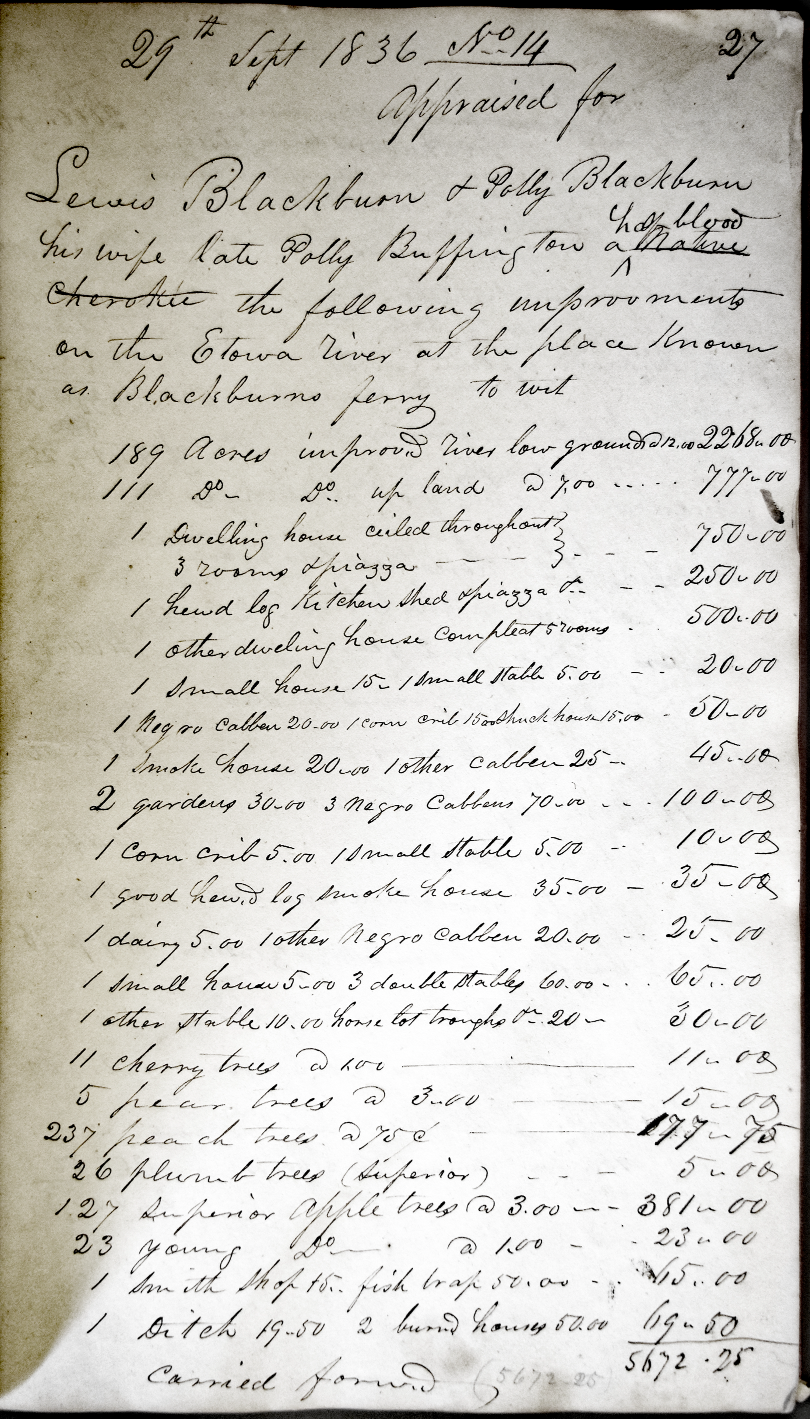 29th Sept 1836 No 14 27
Appraised for
Lewis Blackburn & Polly Blackburn
half blood
his wife late Polly Buffington a Native
Cherokee the following improvments
on the Etowa River at the place Known
as Blackburns ferry to wit
189 Acres improvd River low ground @ 12.00 2268.00
111 Do Do up land @ 7.00 ..... 777.00
1 Dwelling house ceiled throughout } 750.00
3 rooms & piazza — — } - -
1 hewd log Kitchen shed & piazza &c - - 250.00
1 other dweling house compleat 5 rooms - 500.00
1 Small house 15- 1 small stable 5.00 - - 20.00
1 Negro Cabben 20.00 1 corn crib 15.00 shuck house 15.00 - 50.00
1 smoke house 20.00 1 other Cabben 25 - 45.00
2 gardens 30.00 3 Negro Cabbens 70.00 - - - 100.00
1 Corn crib 5.00 1 small stable 5.00 - - 10.00
1 good hew,d log smoke house 35.00 - 35.00
1 dairy 5.00 1 other Negro Cabben 20.00 - - 25.00
1 small house 5.00 3 double stables 60.00 - - - 65.00
1 other stable 10.00 horse lot troughs &c 20 - 30.00
11 cherry trees @ 1.00 — 11.00
5 pear trees @ 3.00 — 15.00
237 peach trees @ 75 ¢ — 177.75
26 plumb trees (superior) - - - 5.00
127 superior Apple trees @ 3.00 - - 381.00
23 young Do @ 1.00 - - 23.00
1 smith shop 15.. fish trap 50.00 - - 65.00
1 Ditch 19.50 2 burnd houses 50.00 69.50
5672.25
Carried forward (5672.25)